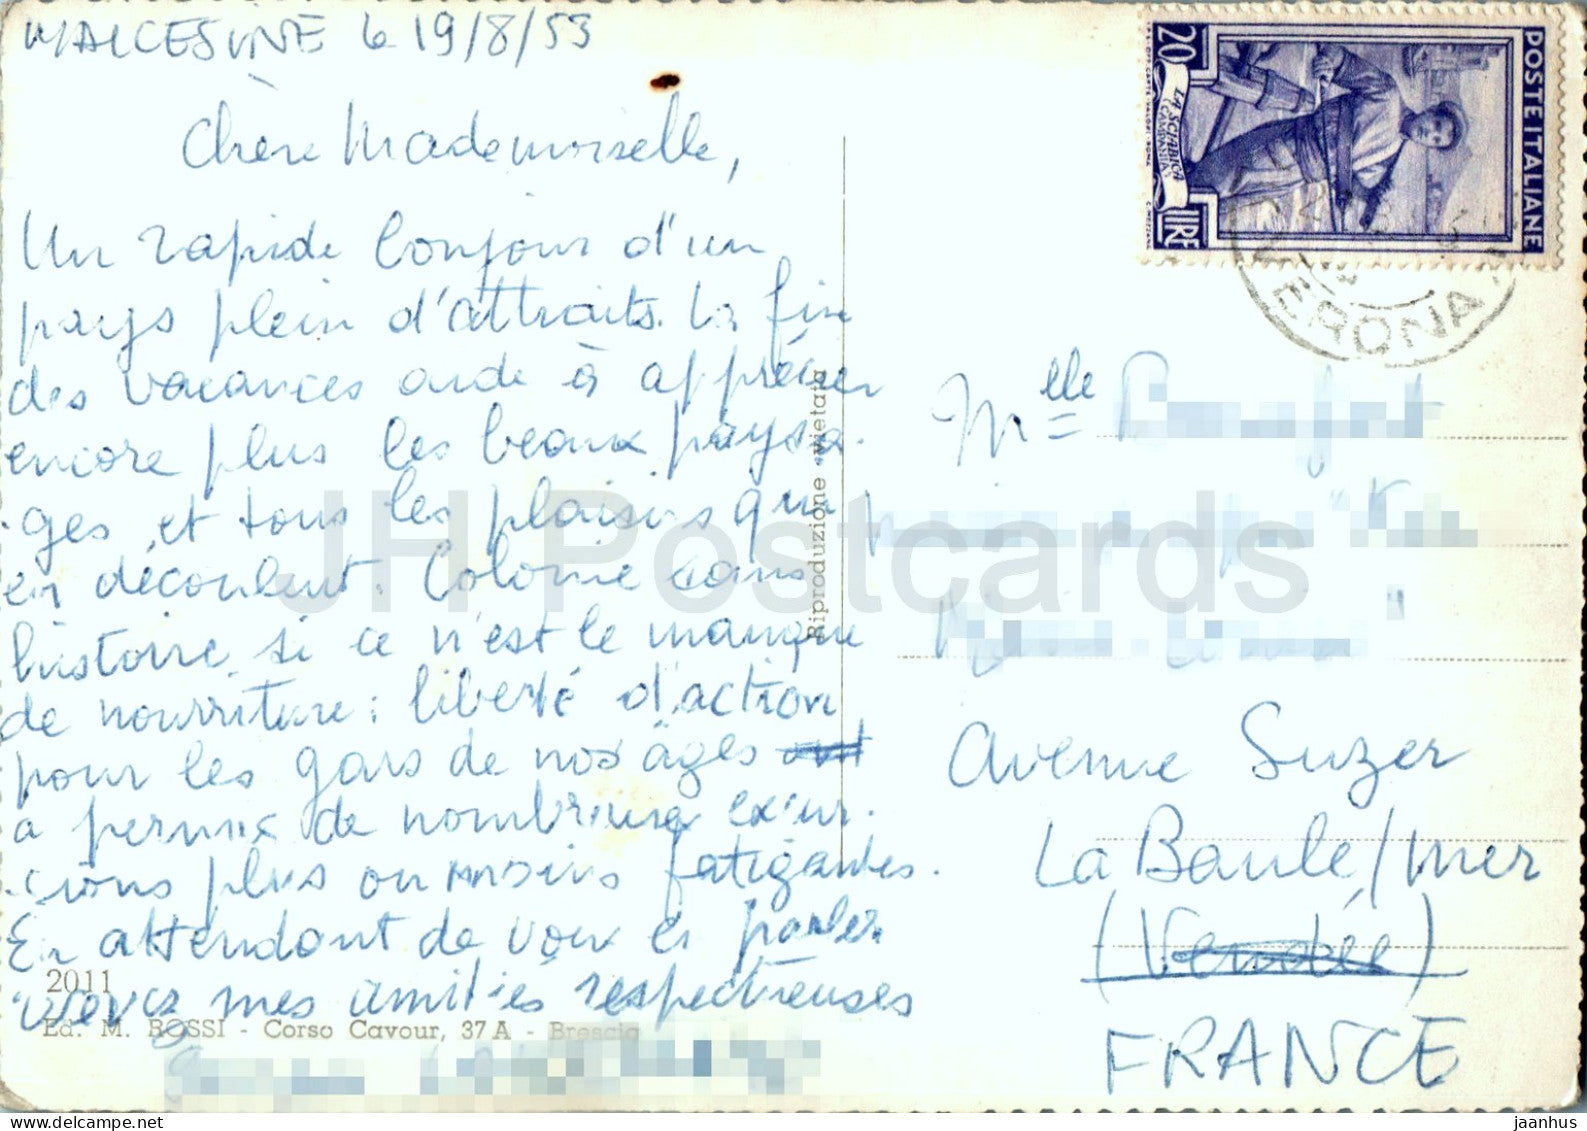 MALCESINE le 19/8/53
Chère Mademoiselle,
Un rapide bonjour d'un
pays plein d'attraits. La fin
des vacances aide à apprécier
encore plus les beaux paysa-
ges, et tous les plaisirs qui
en découlent. Colonie sans
histoire, si ce n'est le manque
de nourriture; liberté d'action
pour les gars de nos âges
a permis de nombreuses excur-
sions plus ou moins fatigantes.
En attendant de vous en parler
recevez mes amitiés respectueuses
2011
Ed. M. ROSSI - Corso Cavour, 37 A - Brescia
Riproduzione vietata
POSTE ITALIANE
20
LIRE
LA SCIABICA
(CAMPANIA)
VERONA
Melle
Avenue Suzer
La Baule/mer
(Vendée)
FRANCE
JH Postcards
jaanhus @ delcampe.net